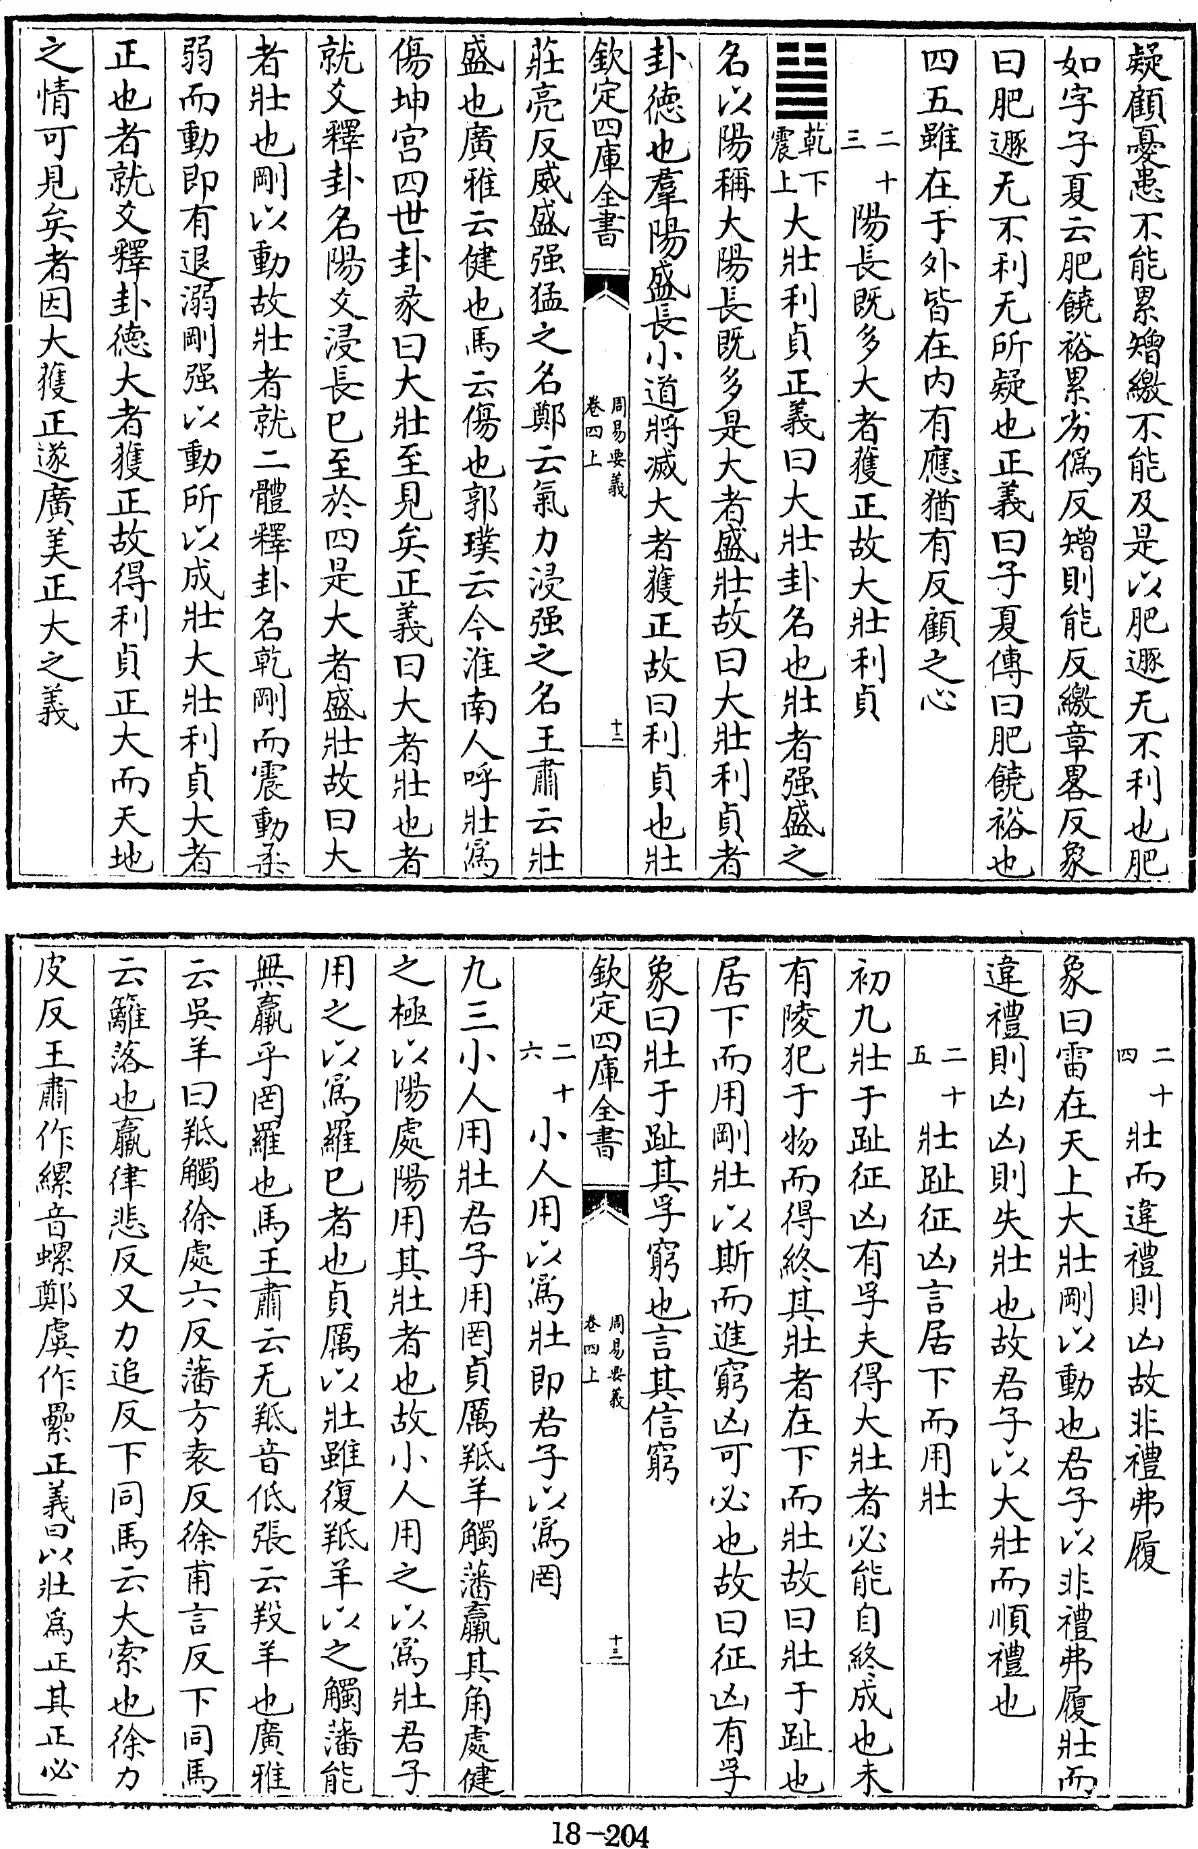 疑顧憂患不能累矰繳不能及是以肥遯无不利也肥
如字子夏云肥饒裕累劣僞反矰則能反繳章畧反象
曰肥遯无不利无所疑也正義曰子夏傳曰肥饒裕也
四五雖在于外皆在内有應猶有反顧之心
二十三 陽長既多大者獲正故大壯利貞
䷡乾下震上大壯利貞正義曰大壯卦名也壯者强盛之
名以陽稱大陽長既多是大者盛壯故曰大壯利貞者
卦德也羣陽盛長小道將滅大者獲正故曰利貞也壯
欽定四庫全書 周易要義卷四上 十二
莊亮反威盛强猛之名鄭云氣力浸强之名王肅云壯
盛也廣雅云健也馬云傷也郭璞云今淮南人呼壯爲
傷坤宫四世卦彖曰大壯至見矣正義曰大者壯也者
就爻釋卦名陽爻浸長已至於四是大者盛壯故曰大
者壯也剛以動故壯者就二體釋卦名乾剛而震動柔
弱而動即有退溺剛强以動所以成壯大壯利貞大者
正也者就爻釋卦德大者獲正故得利貞正大而天地
之情可見矣者因大獲正遂廣美正大之義
二十四 壯而違禮則凶故非禮弗履
象曰雷在天上大壯剛以動也君子以非禮弗履壯而
違禮則凶凶則失壯也故君子以大壯而順禮也
二十五 壯趾征凶言居下而用壯
初九壯于趾征凶有孚夫得大壯者必能自終成也未
有陵犯于物而得終其壯者在下而壯故曰壯于趾也
居下而用剛壯以斯而進窮凶可必也故曰征凶有孚
象曰壯于趾其孚窮也言其信窮
欽定四庫全書 周易要義卷四上 十三
二十六 小人用以爲壯即君子以爲罔
九三小人用壯君子用罔貞厲羝羊觸藩羸其角處健
之極以陽處陽用其壯者也故小人用之以爲壯君子
用之以爲羅已者也貞厲以壯雖復羝羊以之觸藩能
無羸乎罔羅也馬王肅云无羝音低張云羖羊也廣雅
云吳羊曰羝觸徐處六反藩方袁反徐甫言反下同馬
云籬落也羸律悲反又力追反下同馬云大索也徐力
皮反王肅作縲音螺鄭虞作纍正義曰以壯爲正其正必
18-204